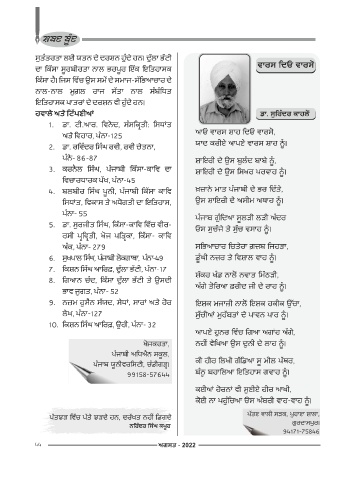 ਸ਼ਬਦ ਬੂੰਦ
ਸੁਤੰਤਰਤਾ ਲਈ ਯਤਨ ਦੇ ਦਰਸ਼ਨ ਹੁੰਦੇ ਹਨ। ਦੁੱਲਾ ਭੱਟੀ
ਦਾ ਕਿੱਸਾ ਸੂਰਬੀਰਤਾ ਨਾਲ ਭਰਪੂਰ ਇੱਕ ਇਤਿਹਾਸਕ
ਕਿੱਸਾ ਹੈ। ਜਿਸ ਵਿੱਚ ਉਸ ਸਮੇਂ ਦੇ ਸਮਾਜ-ਸੱਭਿਆਚਾਰ ਦੇ
ਨਾਲ-ਨਾਲ ਮੁਗਲ ਰਾਜ ਸੱਤਾ ਨਾਲ ਸੰਬੰਧਿਤ
ਇਤਿਹਾਸਕ ਪਾਤਰਾਂ ਦੇ ਦਰਸ਼ਨ ਵੀ ਹੁੰਦੇ ਹਨ।
ਹਵਾਲੇ ਅਤੇ ਟਿੱਪਣੀਆਂ
1. ਡਾ. ਟੀ.ਆਰ. ਵਿਨੋਦ, ਸੰਸਕ੍ਰਿਤੀ: ਸਿਧਾਂਤ
ਅਤੇ ਵਿਹਾਰ, ਪੰਨਾ-125
2. ਡਾ. ਰਵਿੰਦਰ ਸਿੰਘ ਰਵੀ, ਰਵੀ ਚੇਤਨਾ,
ਪੰਨੇ- 86-87
3. ਕਰਨੈਲ ਸਿੰਘ, ਪੰਜਾਬੀ ਕਿੱਸਾ-ਕਾਵਿ ਦਾ
ਵਿਚਾਰਧਾਰਕ ਪੱਖ, ਪੰਨਾ-45
4. ਬਲਬੀਰ ਸਿੰਘ ਪੂਨੀ, ਪੰਜਾਬੀ ਕਿੱਸਾ ਕਾਵਿ
ਸਿਧਾਂਤ, ਵਿਕਾਸ ਤੇ ਅਧੋਗਤੀ ਦਾ ਇਤਿਹਾਸ,
ਪੰਨਾ- 55
5. ਡਾ. ਸੁਰਜੀਤ ਸਿੰਘ, ਕਿੱਸਾ-ਕਾਵਿ ਵਿੱਚ ਵੀਰ-
ਰਸੀ ਪ੍ਰਵਿਤੀ, ਖੋਜ ਪਤ੍ਰਿਕਾ, ਕਿੱਸਾ- ਕਾਵਿ
ਅੰਕ, ਪੰਨਾ- 279
6. ਸੁਖਪਾਲ ਸਿੰਘ, ਪੰਜਾਬੀ ਲੋਕਗਾਥਾ, ਪੰਨਾ49
7. ਕਿਸ਼ਨ ਸਿੰਘ ਆਰਿਫ਼, ਦੁੱਲਾ ਭੱਟੀ, ਪੰਨਾ-17
8. ਗਿਆਨ ਚੰਦ, ਕਿੱਸਾ ਦੁੱਲਾ ਭੱਟੀ ਤੇ ਉਸਦੀ
ਭਾਵ ਜੁਗਤ, ਪੰਨਾ- 52
9. ਨਜਮ ਹੁਸੈਨ ਸੱਯਦ, ਸੇਧਾਂ, ਸਾਰਾਂ ਅਤੇ ਹੋਰ
ਲੇਖ, ਪੰਨਾ-127
10. ਕਿਸ਼ਨ ਸਿੰਘ ਆਰਿਫ਼, ਉਹੀ, ਪੰਨਾ- 32
ਖੋਜਕਰਤਾ,
ਪੰਜਾਬੀ ਅਧਿਐਨ ਸਕੂਲ,
ਪੰਜਾਬ ਯੂਨੀਵਰਸਿਟੀ, ਚੰਡੀਗੜ੍ਹ।
99158-57644
ਪੱਤਝੜ ਵਿੱਚ ਪੱਤੇ ਝੜਦੇ ਹਨ, ਦਰੱਖਤ ਨਹੀਂ ਡਿਗਦੇ
ਨਰਿੰਦਰ ਸਿੰਘ ਕਪੂਰ
ਵਾਰਸ ਦਿਓ ਵਾਰਸੋ
ਡਾ. ਸੁਰਿੰਦਰ ਕਾਹਲੋਂ
ਆਓ ਵਾਰਸ ਸ਼ਾਹ ਦਿਓ ਵਾਰਸੋ,
ਯਾਦ ਕਰੀਏ ਆਪਣੇ ਵਾਰਸ ਸ਼ਾਹ ਨੂੰ।
ਸ਼ਾਇਰੀ ਦੇ ਉਸ ਬੁਲੰਦ ਬਾਬੇ ਨੂੰ,
ਸ਼ਾਇਰੀ ਦੇ ਉਸ ਸਿਖਰ ਪਰਵਾਹ ਨੂੰ।
ਖ਼ਜ਼ਾਨੇ ਮਾਤ ਪੰਜਾਬੀ ਦੇ ਭਰ ਦਿੱਤੇ,
ਉਸ ਸ਼ਾਇਰੀ ਦੇ ਅਸੀਮ ਅਥਾਹ ਨੂੰ।
ਪੰਜਾਬ ਗੁੰਦਿਆ ਸੂਲਤੀ ਲੜੀ ਅੰਦਰ
ਓਸ ਸੁੱਚੀਤੇ ਤੇ ਸੁੱਚ ਵਸਾਹ ਨੂੰ।
ਸਭਿਆਚਾਰ ਚਿਤੇਰਾ ਗਜ਼ਬ ਜਿਹੜਾ,
ਡੂੰਘੀ ਨਜ਼ਰ ਤੇ ਵਿਸ਼ਾਲ ਵਾਹ ਨੂੰ।
ਸ਼ੱਕਰ ਖੰਡ ਨਾਲੋਂ ਨਵਾਤ ਮਿੱਠੜੀ,
ਅੱਗੇ ਤੋਰਿਆ ਫ਼ਰੀਦ ਜੀ ਦੇ ਰਾਹ ਨੂੰ।
ਇਸ਼ਕ ਮਜਾਜ਼ੀ ਨਾਲੋਂ ਇਸ਼ਕ ਹਕੀਕ ਉੱਚਾ,
ਸੁੱਚੀਆਂ ਮੁਹੱਬਤਾਂ ਦੇ ਪਾਵਨ ਪਾਹ ਨੂੰ।
ਆਪਣੇ ਹੁਨਰ ਵਿੱਚ ਗਿਆ ਅਗਾਹ ਅੱਗੇ,
ਨਹੀਂ ਵੇਖਿਆ ਉਸ ਦੁਨੀ ਦੇ ਲਾਹ ਨੂੰ।
ਕੀ ਹੀਰ ਲਿਖੀ ਗੱਡਿਆ ਸੂ ਮੀਲ ਪੱਥਰ,
ਬੰਨ੍ਹ ਬਹਾਲਿਆ ਇਤਿਹਾਸ ਗਵਾਹ ਨੂੰ।
ਕਈਆਂ ਹੋਰਨਾਂ ਵੀ ਸੁਣੀਦੇ ਹੀਰ ਆਖੀ,
ਕੋਈ ਨਾ ਪਹੁੰਚਿਆ ਓਸ ਅੰਬਰੀ ਵਾਹ-ਵਾਹ ਨੂੰ।
ਪੰਡਤ ਵਾਲੀ ਸੜਕ, ਪੁਰਾਣਾ ਸ਼ਾਲਾ,
ਗੁਰਦਾਸਪੁਰ।
94171-75846
ਅਗਸਤ - 2022